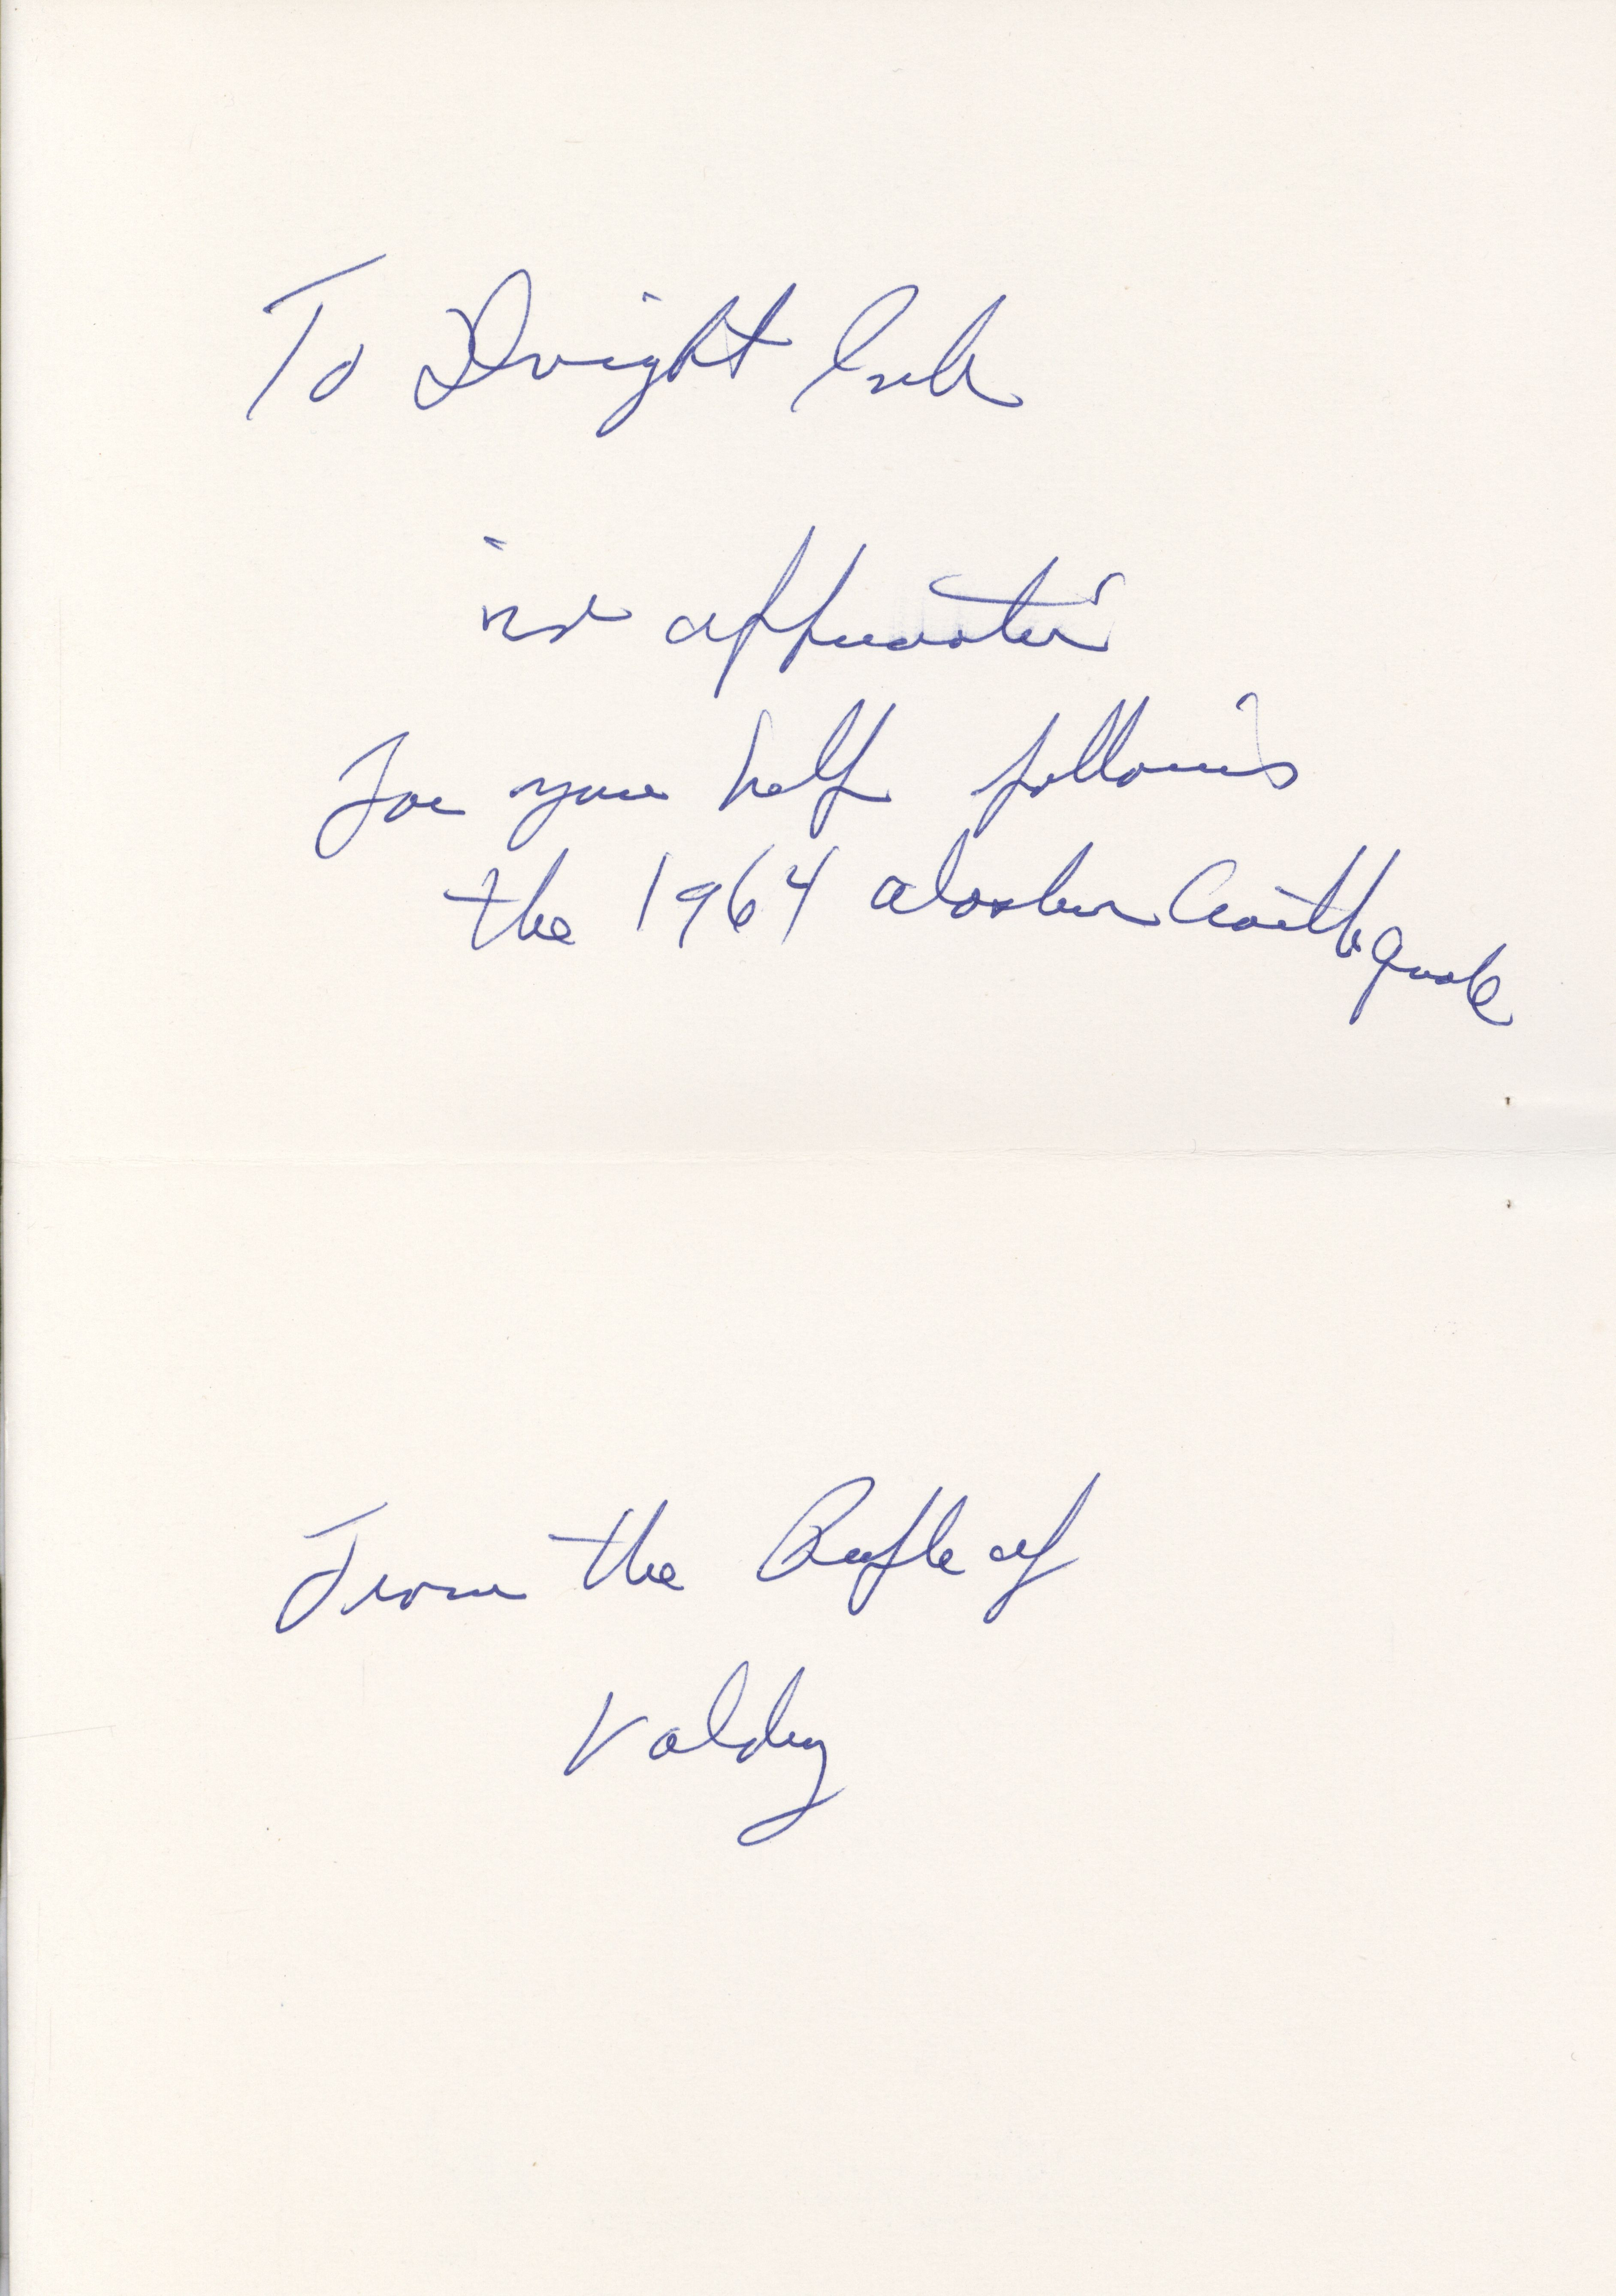 To Dwight Ink
in appreciation
For your help following
the 1964 Alaskan Earthquake
From the People of
Valdez